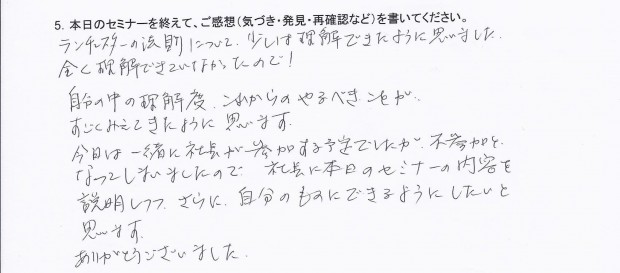 5. 本日のセミナーを終えて、ご感想（気づき・発見・再確認など）を書いてください。
ランチェスターの法則について、少しは理解できたように思いました。
全く理解できていなかったので！
自分の中の理解度、これからのやるべきことが、
すごくみえてきたように思います。
今日は一緒に社長が参加する予定でしたが、不参加と
なってしまいましたので、社長に本日のセミナーの内容を
説明しつつ、さらに、自分のものにできるようにしたいと
思います。
ありがとうございました。